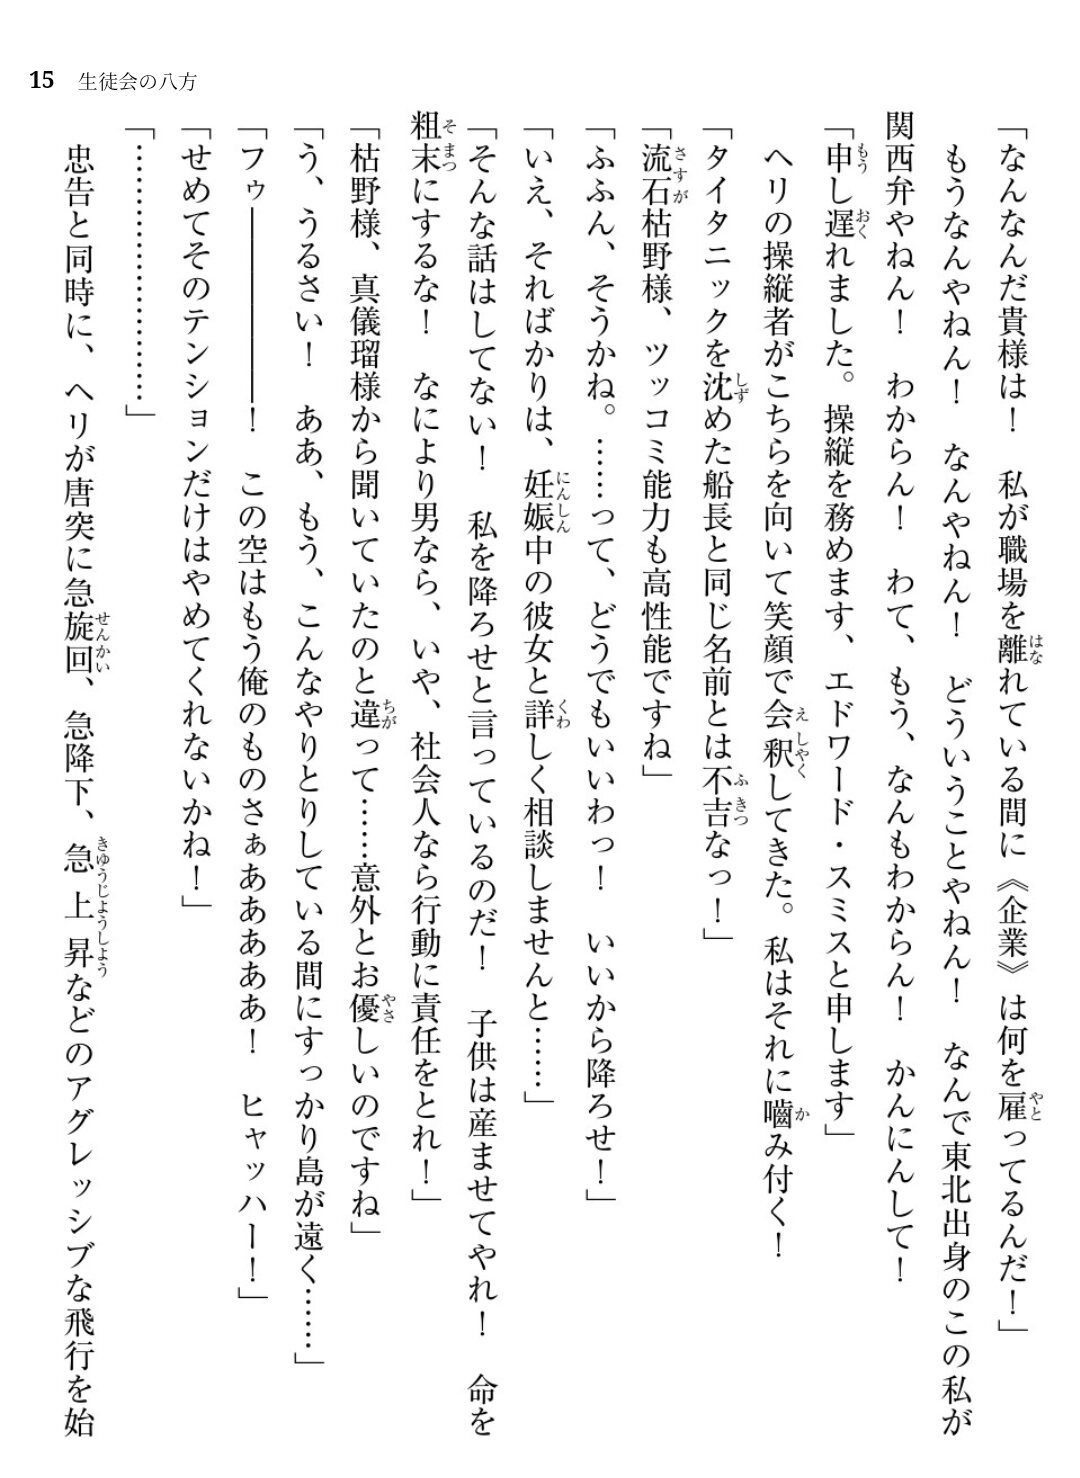 15 生徒会の八方
「なんなんだ貴様は！　私が職場を離れている間に《企業》は何を雇ってるんだ！」
　もうなんやねん！　なんやねん！　どういうことやねん！　なんで東北出身のこの私が
関西弁やねん！　わからん！　わて、もう、なんもわからん！　かんにんして！
「申し遅れました。操縦を務めます、エドワード・スミスと申します」
　ヘリの操縦者がこちらを向いて笑顔で会釈してきた。私はそれに嚙み付く！
「タイタニックを沈めた船長と同じ名前とは不吉なっ！」
「流石枯野様、ツッコミ能力も高性能ですね」
「ふふん、そうかね。……って、どうでもいいわっ！　いいから降ろせ！」
「いえ、そればかりは、妊娠中の彼女と詳しく相談しませんと……」
「そんな話はしてない！　私を降ろせと言っているのだ！　子供は産ませてやれ！　命を
粗末にするな！　なにより男なら、いや、社会人なら行動に責任をとれ！」
「枯野様、真儀瑠様から聞いていたのと違って……意外とお優しいのですね」
「う、うるさい！　ああ、もう、こんなやりとりしている間にすっかり島が遠く……」
「フゥ――――――！　この空はもう俺のものさぁあああああ！　ヒャッハー！」
「せめてそのテンションだけはやめてくれないかね！」
「……………………」
　忠告と同時に、ヘリが唐突に急旋回、急降下、急上昇などのアグレッシブな飛行を始